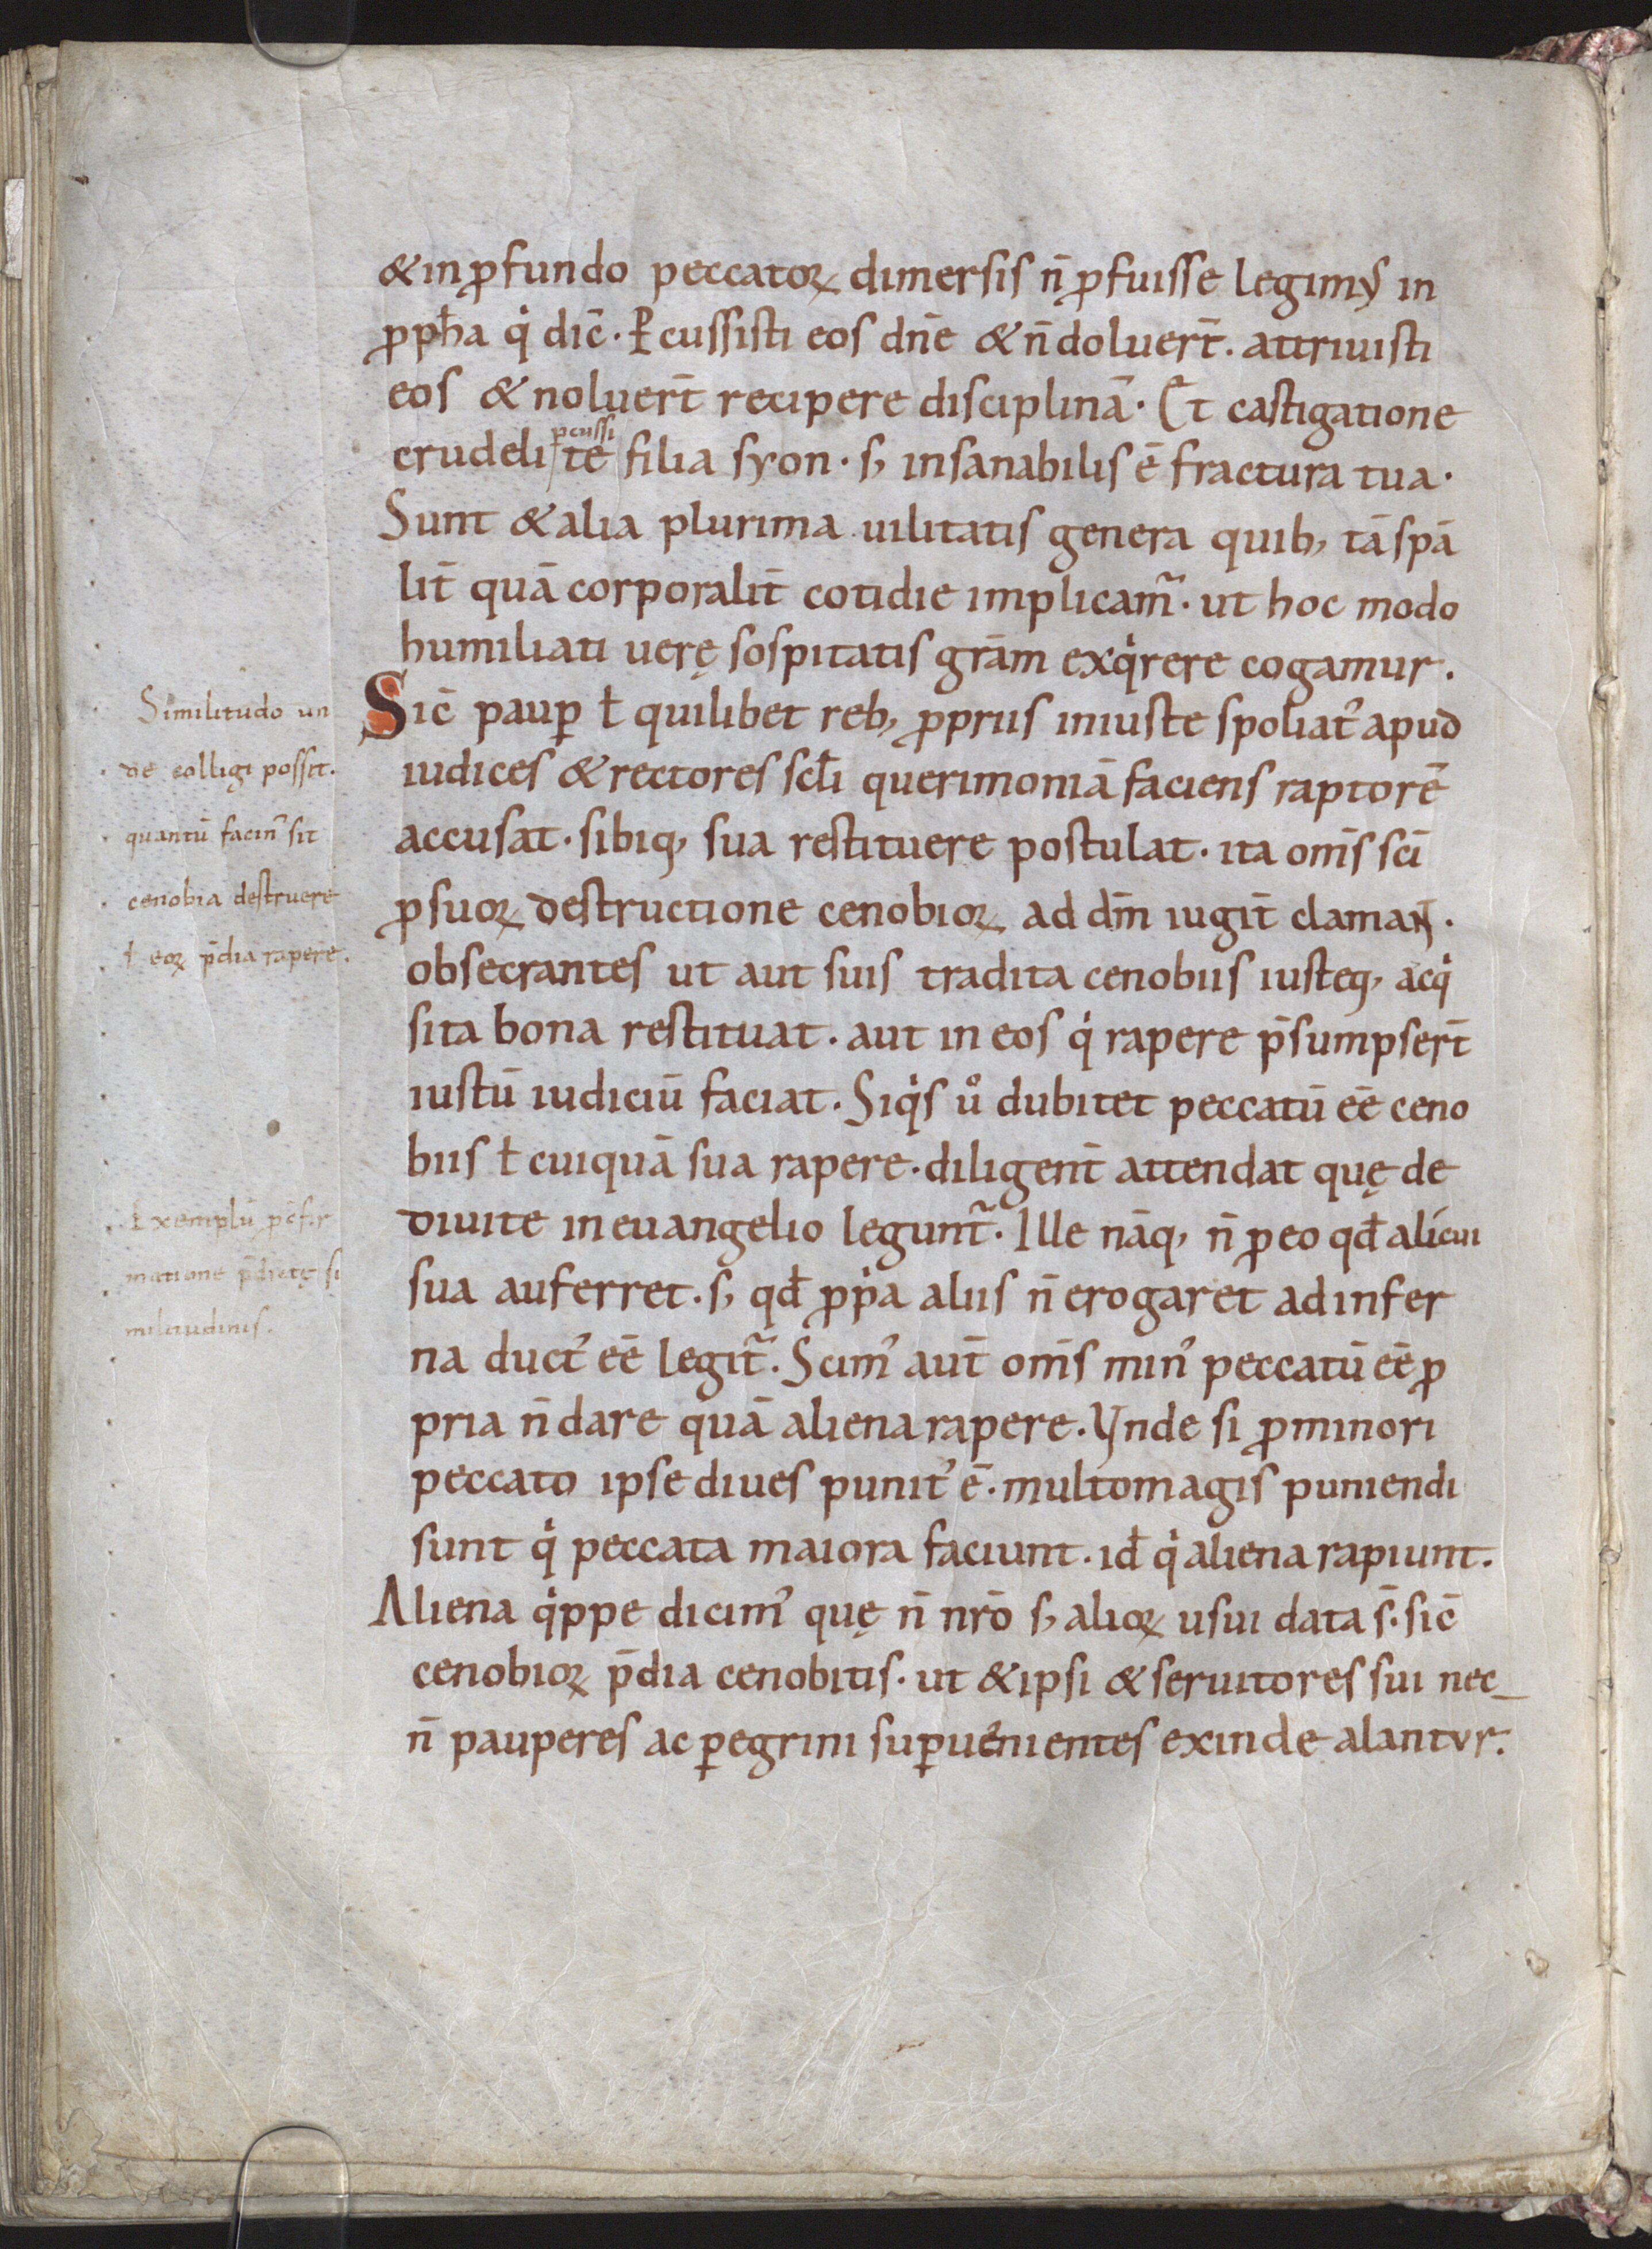 & in ꝓfundo peccatoꝝ dimersis n̄ ꝓfuisse legimꝰ in
ꝓph̄a qͥ dic̄. Ꝑcussisti eos dn̄e & n̄ doluer̄t. attriuisti
eos & noluer̄t recipere disciplinā. Et castigatione
crudeli ꝑcussi tē filia syon. s; insanabilis ē fractura tua.
Sunt & alia plurima uilitatis genera quib; tā spā
lit̄ quā corporalit̄ cotidie implicam̃. ut hoc modo
humiliati uerę sospitatis grām exqͥrere cogamur.
Sic̄ pauꝑ ł quilibet reb; ꝓpriis iniuste spoliatꝰ apud
iudices & rectores scłi querimoniā faciens raptorē
accusat. sibiq; sua restituere postulat. ita om̄s sc̄i
ꝓ suoꝝ destructione cenobioꝝ ad dm̄ iugit̄ clamant.
obsecrantes ut aut suis tradita cenobiis iusteq; acqͥ
sita bona restituat. aut in eos qͥ rapere p̄sumpser̄t
iustū iudiciū faciat. Siqͥs uͦ dubitet peccatū ēē ceno
biis ł cuiquā sua rapere. diligent̄ attendat quę de
diuite in euangelio legunt̃. Ille nāq; n̄ ꝓ eo qđ alicui
sua auferret. s; qđ ꝓpͥa aliis n̄ erogaret ad infer
na ductꝰ ēē legit̃. Scimꝰ aut̄ om̄s minꝰ peccatū ēē ꝓ
pria n̄ dare quā aliena rapere. Vnde si ꝓ minori
peccato ipse diues punitꝰ ē. multo magis puniendi
sunt qͥ peccata maiora faciunt. id̄ qͥ aliena rapiunt.
Aliena qͥppe dicimꝰ quę n̄ nr̄o s; alioꝝ usui data s̄. sic̄
cenobioꝝ p̄dia cenobitis. ut & ipsi & seruitores sui nec
n̄ pauperes ac ꝑegrini suꝑuenientes exinde alantur.
Similitudo un
de colligi possit.
quantū facinꝰ sit
cenobia destruere
ł eoꝝ p̄dia rapere.
Exemplū ꝓ c̄fir
matione p̄dictę si
militudinis.